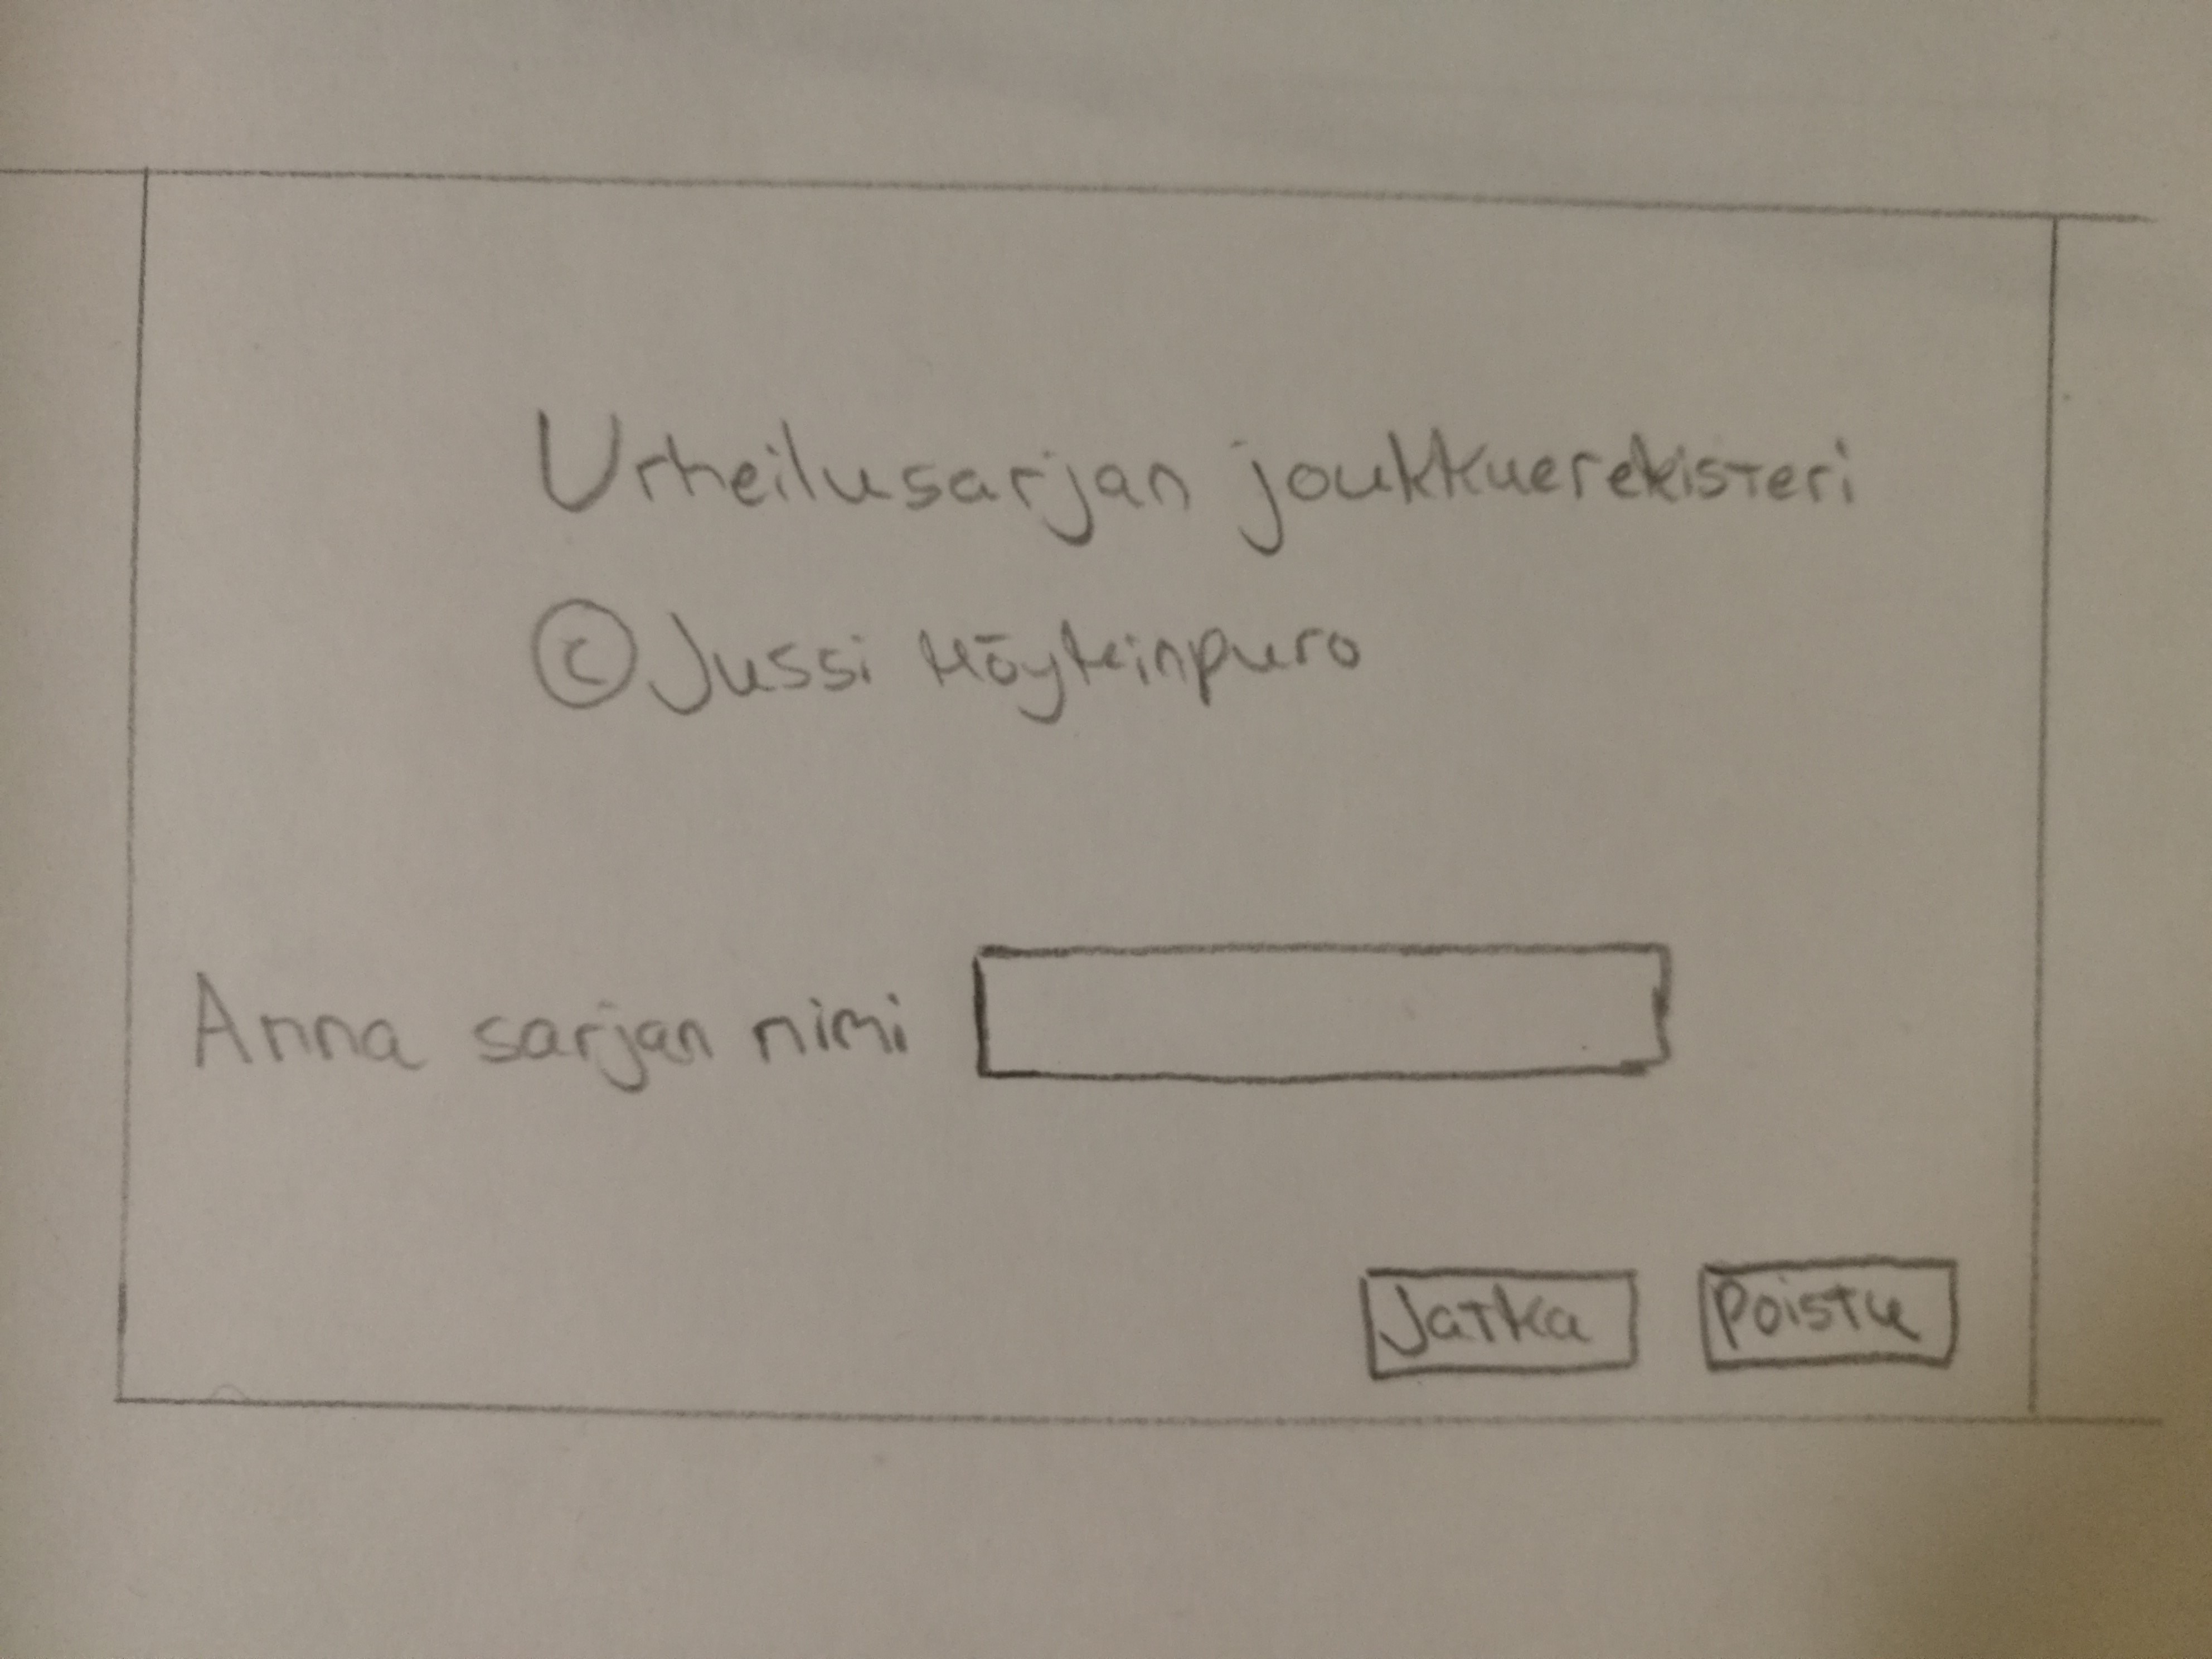 Urheilusarjan joukkuerekisteri
© Jussi Höyteinpuro
Anna sarjan nimi
Jatka Poistu